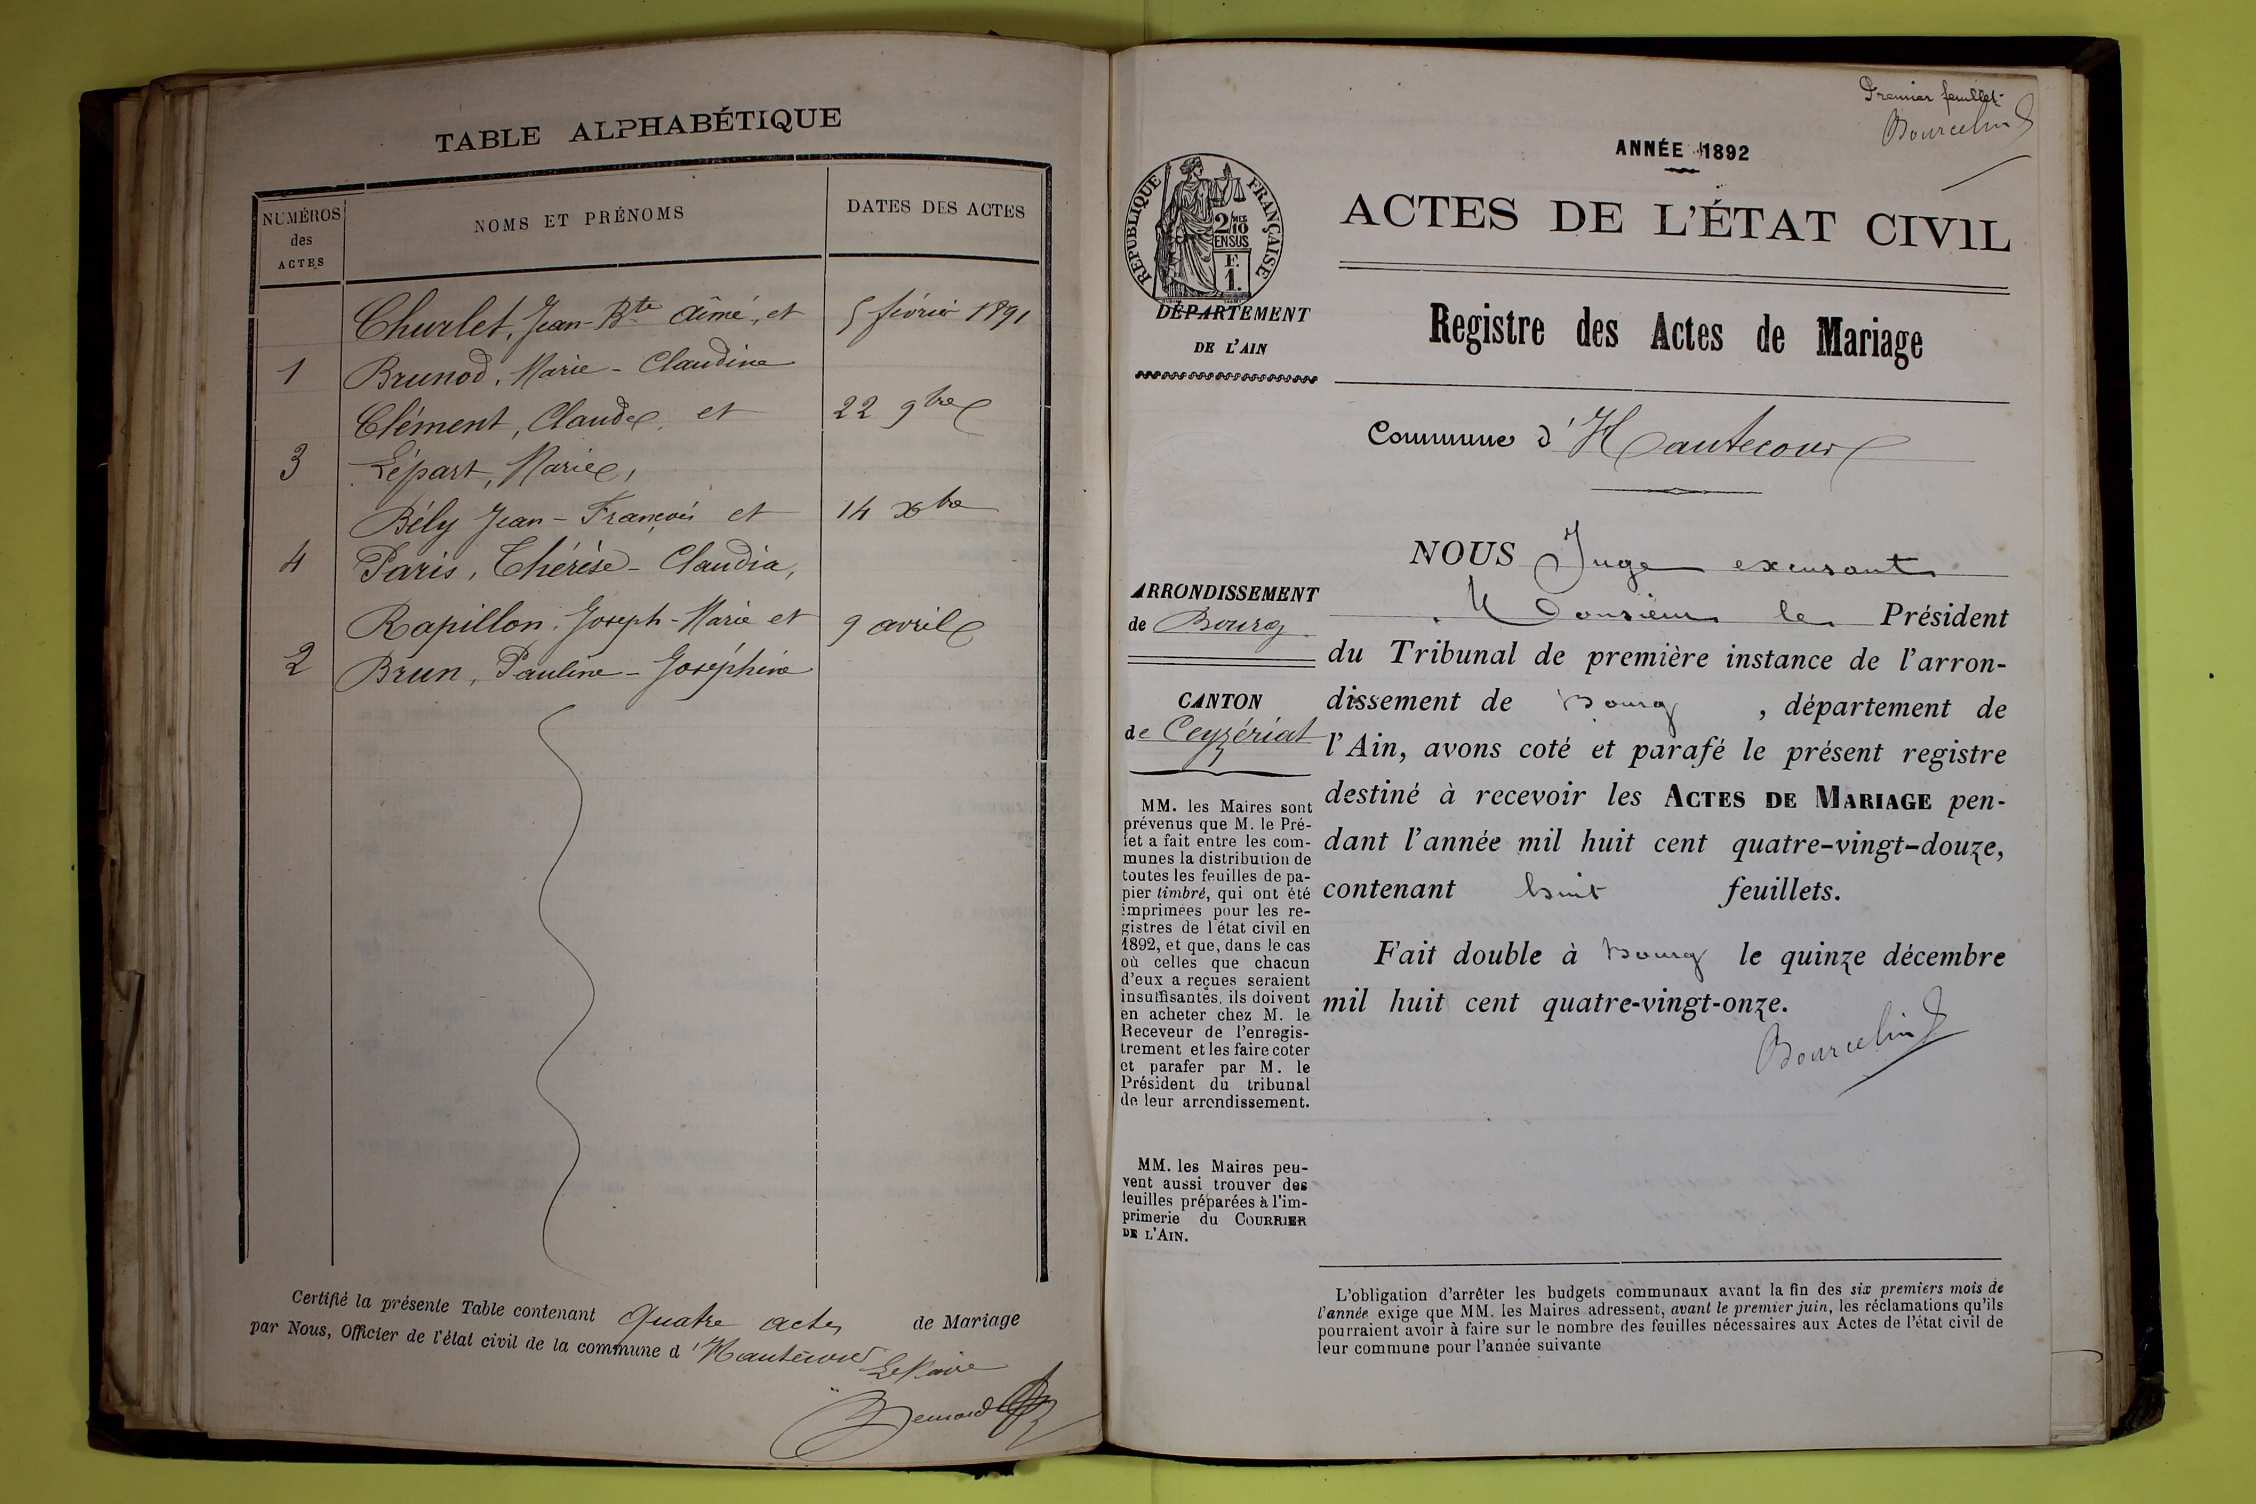 TABLE ALPHABÉTIQUE
NUMÉROS
des
ACTES
NOMS ET PRÉNOMS
DATES DES ACTES
Churlet, Jean-Bte Aimé, et 5 février 1891
1 Brunod, Marie-Claudine
Clément, Claude, et 22 9bre
3 Lépart, Marie,
Bély Jean-François et 14 Xbre
4 Paris, Thérèse-Claudia,
Rapillon, Joseph-Marie et 9 avril
2 Brun, Pauline-Joséphine
Certifié la présente Table contenant quatre actes de Mariage
par Nous, Officier de l'état civil de la commune d'Hautecour
Le Maire
Bernard
Premier feuillet
Bourcelin
ANNÉE 1892
RÉPUBLIQUE FRANÇAISE
2/10
EN SUS
F.
1.
ACTES DE L'ÉTAT CIVIL
DÉPARTEMENT
DE L'AIN
Registre des Actes de Mariage
Commune d'Hautecour
ARRONDISSEMENT
de Bourg
CANTON
de Ceyzériat
MM. les Maires sont
prévenus que M. le Pré-
fet a fait entre les com-
munes la distribution de
toutes les feuilles de pa-
pier timbré, qui ont été
imprimées pour les re-
gistres de l'état civil en
1892, et que, dans le cas
où celles que chacun
d'eux a reçues seraient
insuffisantes, ils doivent
en acheter chez M. le
Receveur de l'enregis-
trement et les faire coter
et parafer par M. le
Président du tribunal
de leur arrondissement.
MM. les Maires peu-
vent aussi trouver des
feuilles préparées à l'im-
primerie du COURRIER
DE L'AIN.
NOUS Juge excusant
Monsieur le Président
du Tribunal de première instance de l'arron-
dissement de Bourg, département de
l'Ain, avons coté et parafé le présent registre
destiné à recevoir les ACTES DE MARIAGE pen-
dant l'année mil huit cent quatre-vingt-douze,
contenant huit feuillets.
Fait double à Bourg le quinze décembre
mil huit cent quatre-vingt-onze.
Bourcelin
L'obligation d'arrêter les budgets communaux avant la fin des six premiers mois de
l'année exige que MM. les Maires adressent, avant le premier juin, les réclamations qu'ils
pourraient avoir à faire sur le nombre des feuilles nécessaires aux Actes de l'état civil de
leur commune pour l'année suivante